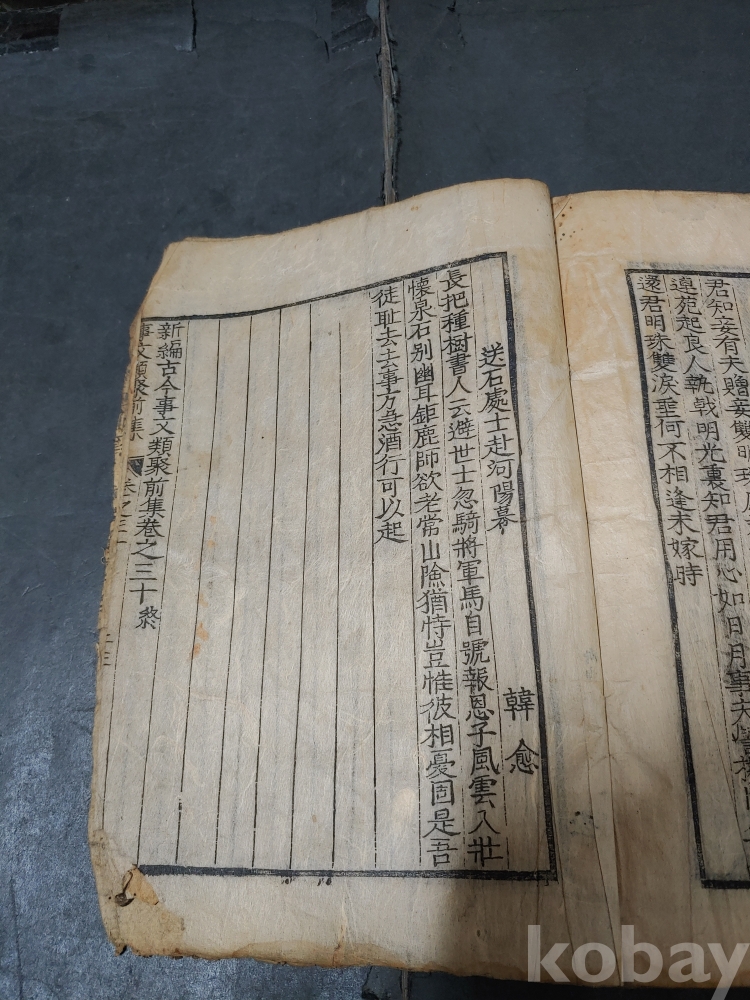 君知妾有夫贈妾雙明珠
連苑起良人執戟明光裏知君用心如日月事夫
還君明珠雙淚垂何不相逢未嫁時
送石處士赴河陽幕 韓愈
長把種樹書人云避世士忽騎將軍馬自號報恩子風雲入壯
懷泉石別幽耳鉅鹿師欲老常山險猶恃豈惟彼相憂固是吾
徒恥去去事方急酒行可以起
新編古今事文類聚前集卷之三十 終
事文類聚前集 卷之三十
kobay